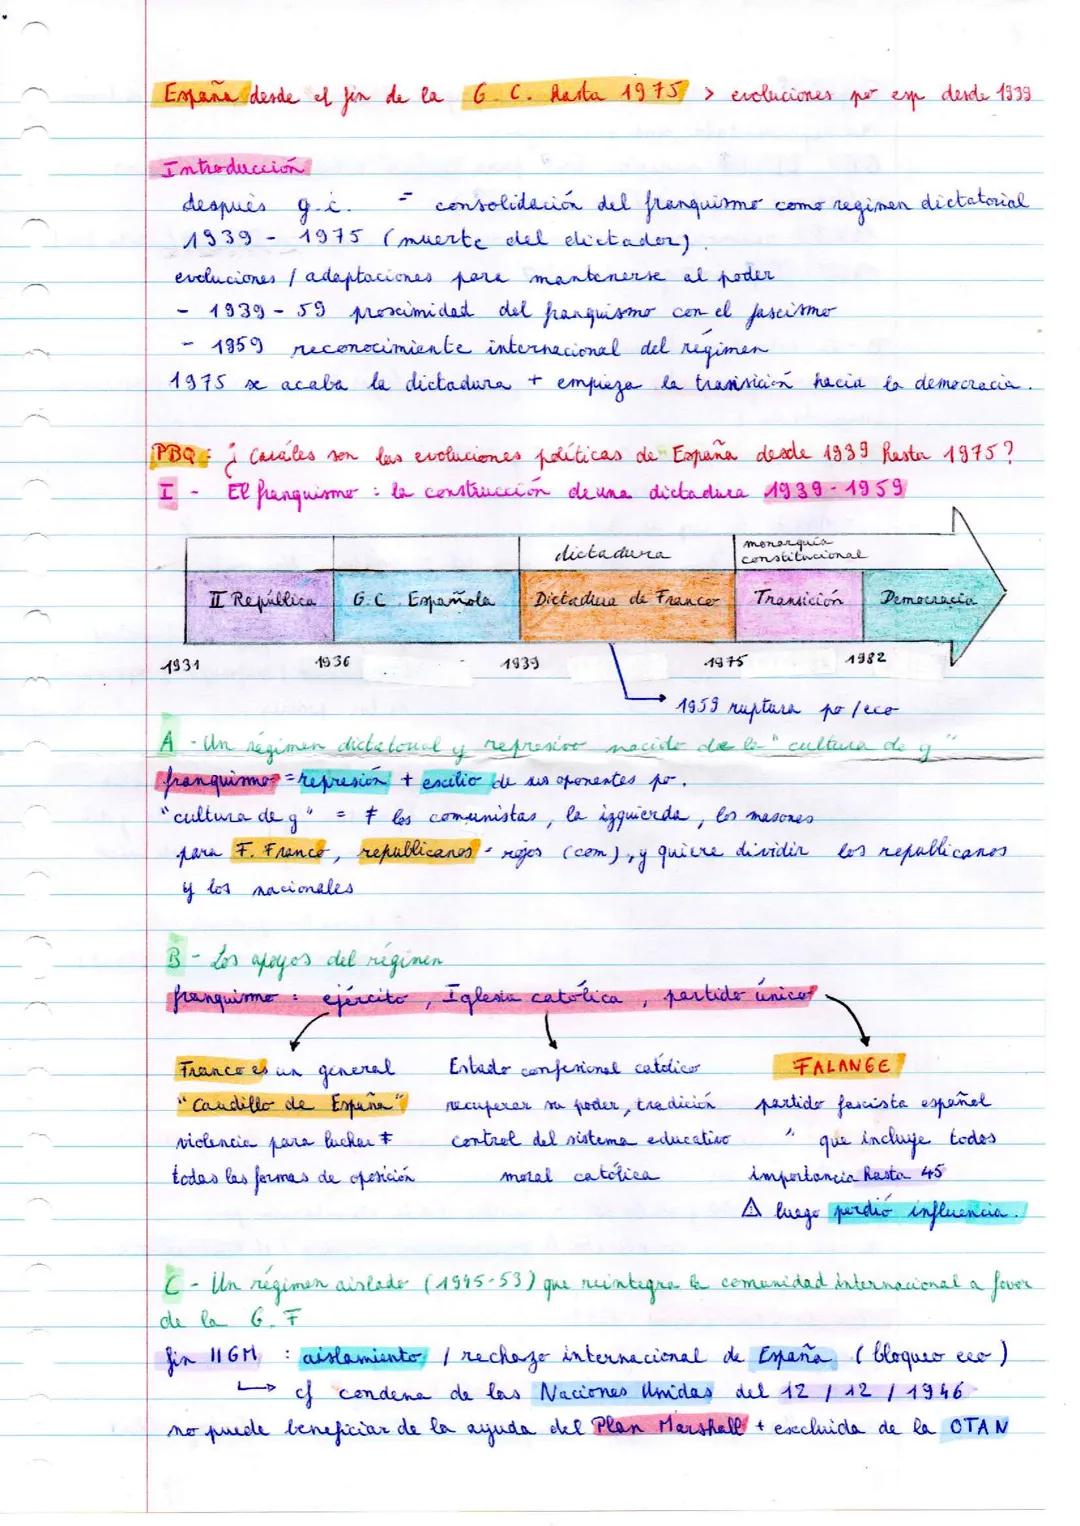 España desde el fin de la G.C. hasta 1975 > evoluciones po esp desde 1939
Introducción
después g.c. = consolidación del franquismo como regimen dictatorial
1939 - 1975 (muerte del dictador).
evoluciones / adaptaciones para mantenerse al poder
- 1939 - 59 proximidad del franquismo con el fascismo
- 1959 reconocimiente internacional del régimen
1975 se acaba la dictadura + empieza la transición hacia la democracia.
PBQ : ¿ Cuáles son las evoluciones políticas de España desde 1939 hasta 1975 ?
I - El franquismo : la construcción de una dictadura 1939 - 1959
dictadura
monarquía
constitucional
II República G.C Española Dictadura de Franco Transición Democracia
1931 1936 1939 1975 1982
→ 1959 ruptura po / eco
A - Un régimen dictatorial y represivo nacido de la "cultura de g"
franquismo = represión + exilio de sus oponentes po.
"cultura de g" = ≠ los comunistas, la izquierda, los masones
para F. Franco, republicanos = rojos (com), y quiere dividir los republicanos
y los nacionales
B - Los apoyos del régimen
franquismo : ejército, Iglesia católica, partido único
Franco es un general Estado confesional católico FALANGE
"Caudillo de España" recuperar su poder, tradición partido fascista español
violencia para luchar ≠ control del sistema educativo " que incluye todos
todas las formas de oposición moral católica importancia hasta 45
⚠ luego perdió influencia.
C - Un régimen aislado (1945-53) que reintegra la comunidad internacional a favor
de la G.F
fin IIGM : aislamiento / rechazo internacional de España (bloqueo eco)
↳ cf condena de las Naciones Unidas del 12 / 12 / 1946
no puede beneficiar de la ayuda del Plan Marshall + excluida de la OTAN